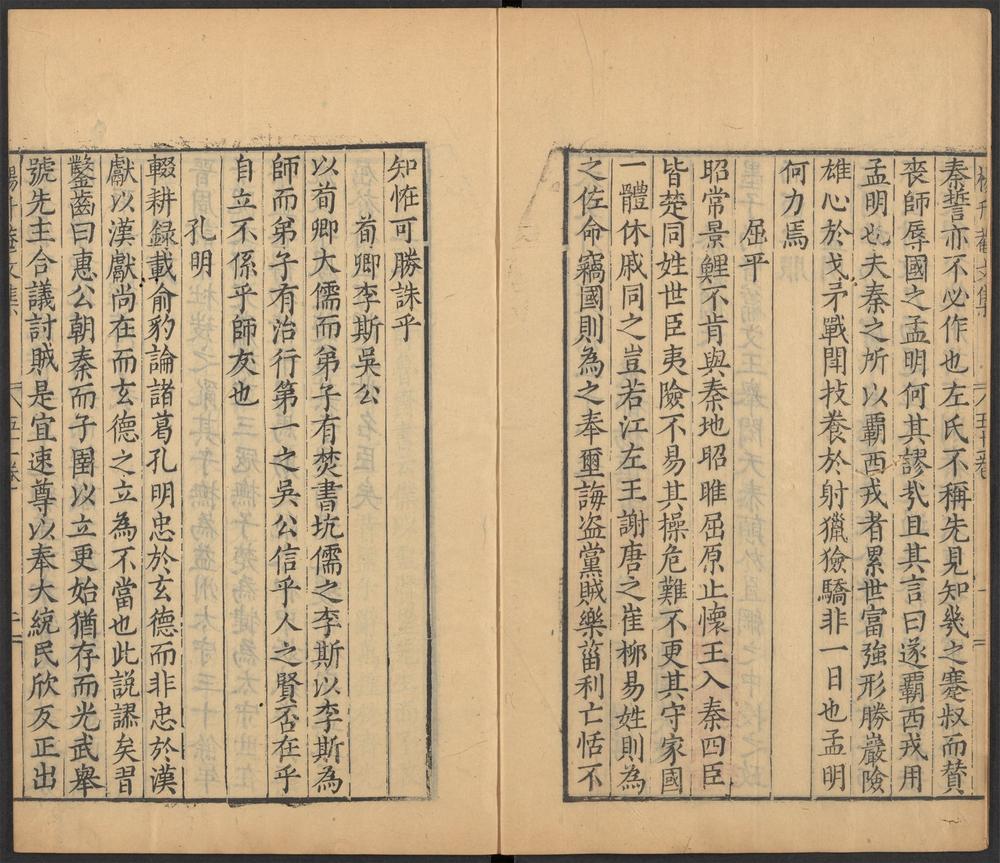 秦誓亦不必作也左氏不稱先見知幾之蹇叔而賛
喪師辱國之孟明何其謬㢤且其言曰遂覇西戎用
孟明也夫秦之所以覇西戎者累世富強形勝巖險
雄心於戈矛戰鬭技養於射獵獫驕非一日也孟明
何力焉
屈平
昭常景鯉不肯與秦地昭睢屈原止懷王入秦四臣
皆楚同姓世臣夷險不易其操危難不更其守家國
一體休戚同之豈若江左王謝唐之崔柳易姓則為
之佐命竊國則為之奉璽誨盗黨賊樂菑利亡恬不
知恠可勝誅乎
荀卿李斯吳公
以荀卿大儒而弟子有焚書坑儒之李斯以李斯為
師而弟子有治行第一之吳公信乎人之賢否在乎
自立不係乎師友也
孔明
輟耕録載俞豹論諸葛孔明忠於玄德而非忠於漢
獻以漢獻尚在而玄德之立為不當也此説謬矣習
鑿齒曰惠公朝秦而子圉以立更始猶存而光武舉
號先主合議討賊是宜速尊以奉大統民欣反正出